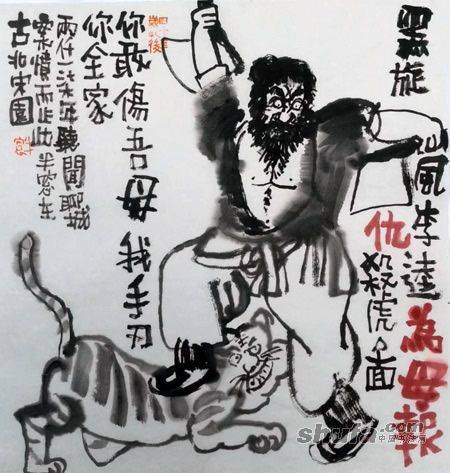 黑旋
風李逵為母報
仇殺虎面
你敢傷吾母我手刃
你全家
兩仟一柒年聽聞聊城
案憤而作此半在
古北宋園
shufa.com
中国书法网